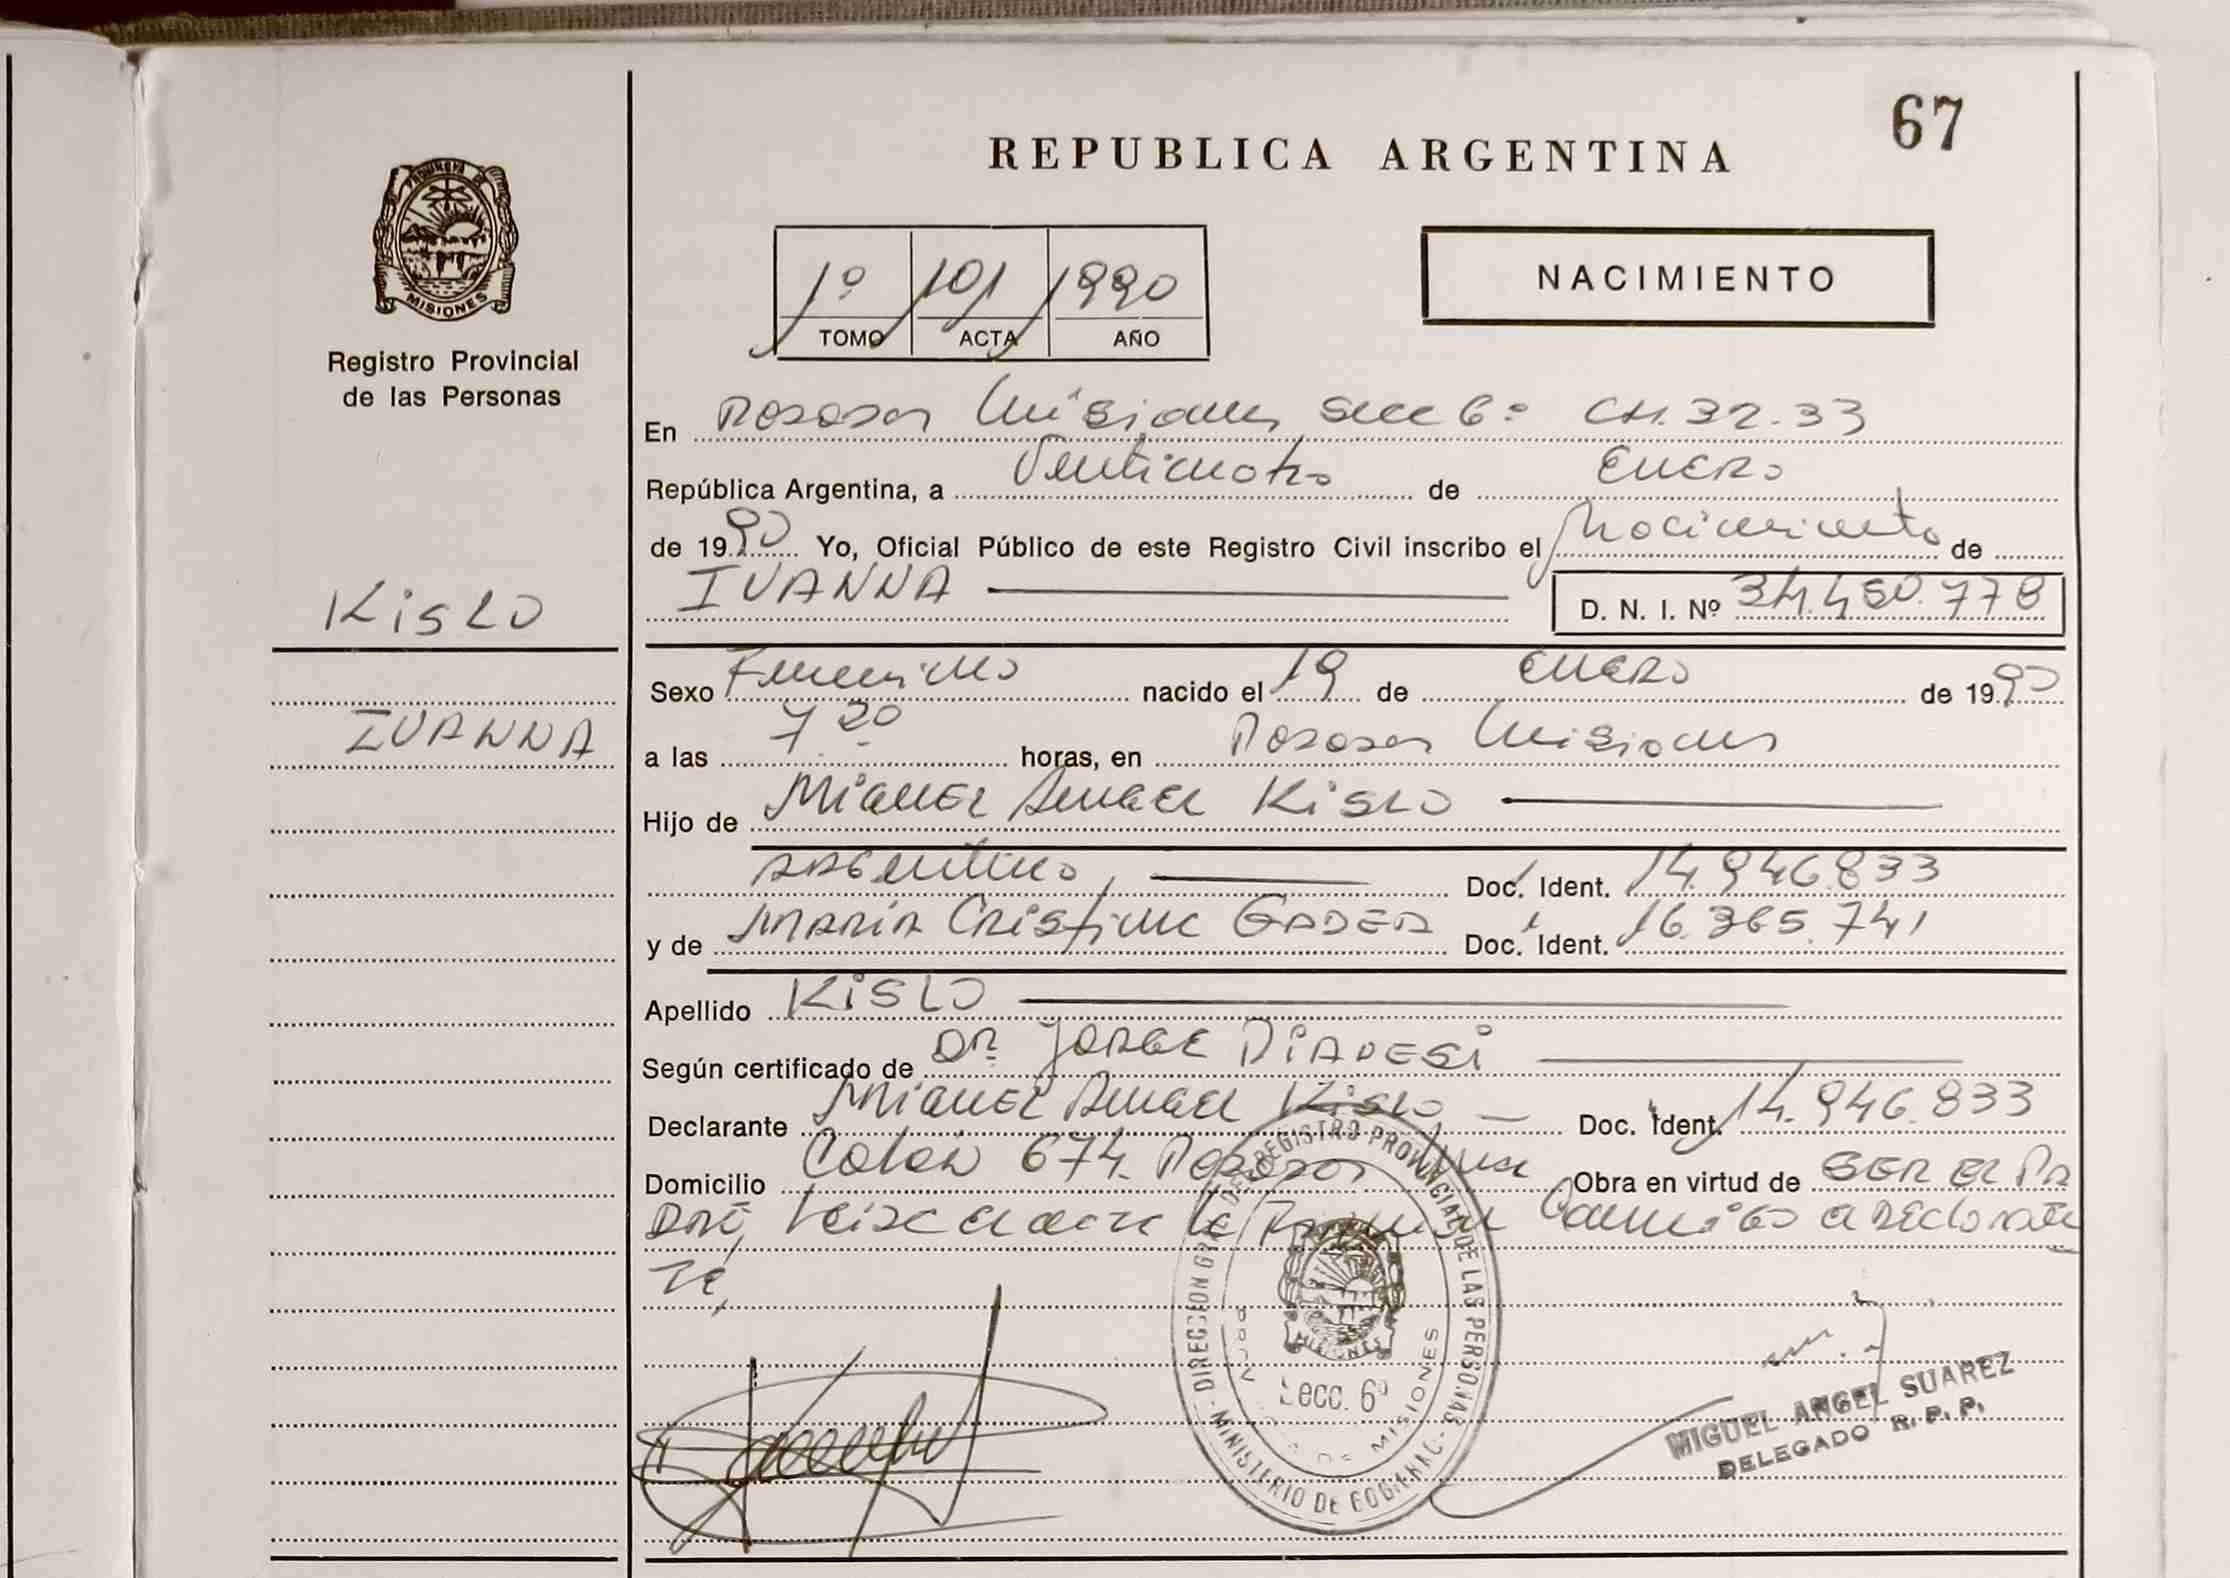 67
REPUBLICA ARGENTINA
PROVINCIA DE
MISIONES
Registro Provincial
de las Personas
1º 101 1990
TOMO ACTA AÑO
NACIMIENTO
En Posadas Misiones Secc 6º CH. 32.33
República Argentina, a Venticuatro de Enero
de 1990 Yo, Oficial Público de este Registro Civil inscribo el Nacimiento de
IVANNA D. N. I. Nº 34.450.778
Kislo
IVANNA
Sexo Femenino nacido el 19 de Enero de 1990
a las 7 20 horas, en Posadas Misiones
Hijo de Miguel Angel Kislo
Argentino, Doc. Ident. 14.946.833
y de María Cristina GADEA Doc. Ident. 16.365.741
Apellido Kislo
Según certificado de Dr. Jorge
Declarante Miguel Angel Kislo Doc. Ident. 14.946.833
Domicilio Colón 674. Posadas Obra en virtud de SER EL PA
DRE,
DIRECCION GRAL. DEL REGISTRO PROVINCIAL DE LAS PERSONAS
MINISTERIO DE GOBIERNO
MISIONES
Secc. 6º
DE MISIONES
MIGUEL ANGEL SUAREZ
DELEGADO R. P. P.